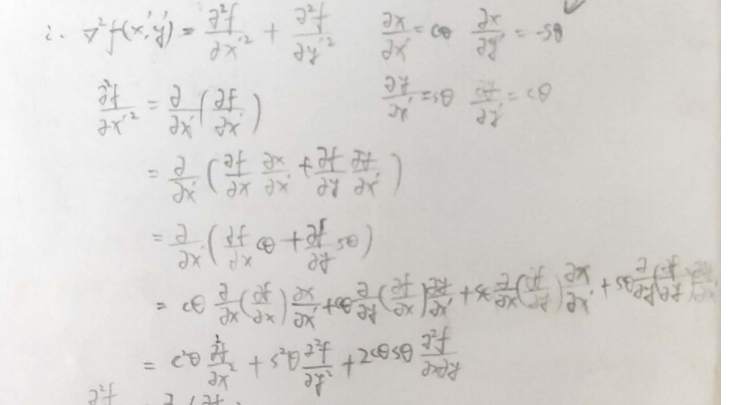 ∴ ∇²f(x',y') = ∂²f/∂x'² + ∂²f/∂y'²   ∂x/∂x' = cθ   ∂x/∂y' = -sθ
∂²f/∂x'² = ∂/∂x' (∂f/∂x')   ∂y/∂x' = sθ   ∂y/∂y' = cθ
= ∂/∂x' (∂f/∂x ∂x/∂x' + ∂f/∂y ∂y/∂x')
= ∂/∂x' (∂f/∂x cθ + ∂f/∂y sθ)
= cθ ∂/∂x (∂f/∂x) ∂x/∂x' + cθ ∂/∂y (∂f/∂x) ∂y/∂x' + sθ ∂/∂x (∂f/∂y) ∂x/∂x' + sθ ∂/∂y (∂f/∂y)
= c²θ ∂²f/∂x² + s²θ ∂²f/∂y² + 2cθsθ ∂²f/∂x∂y